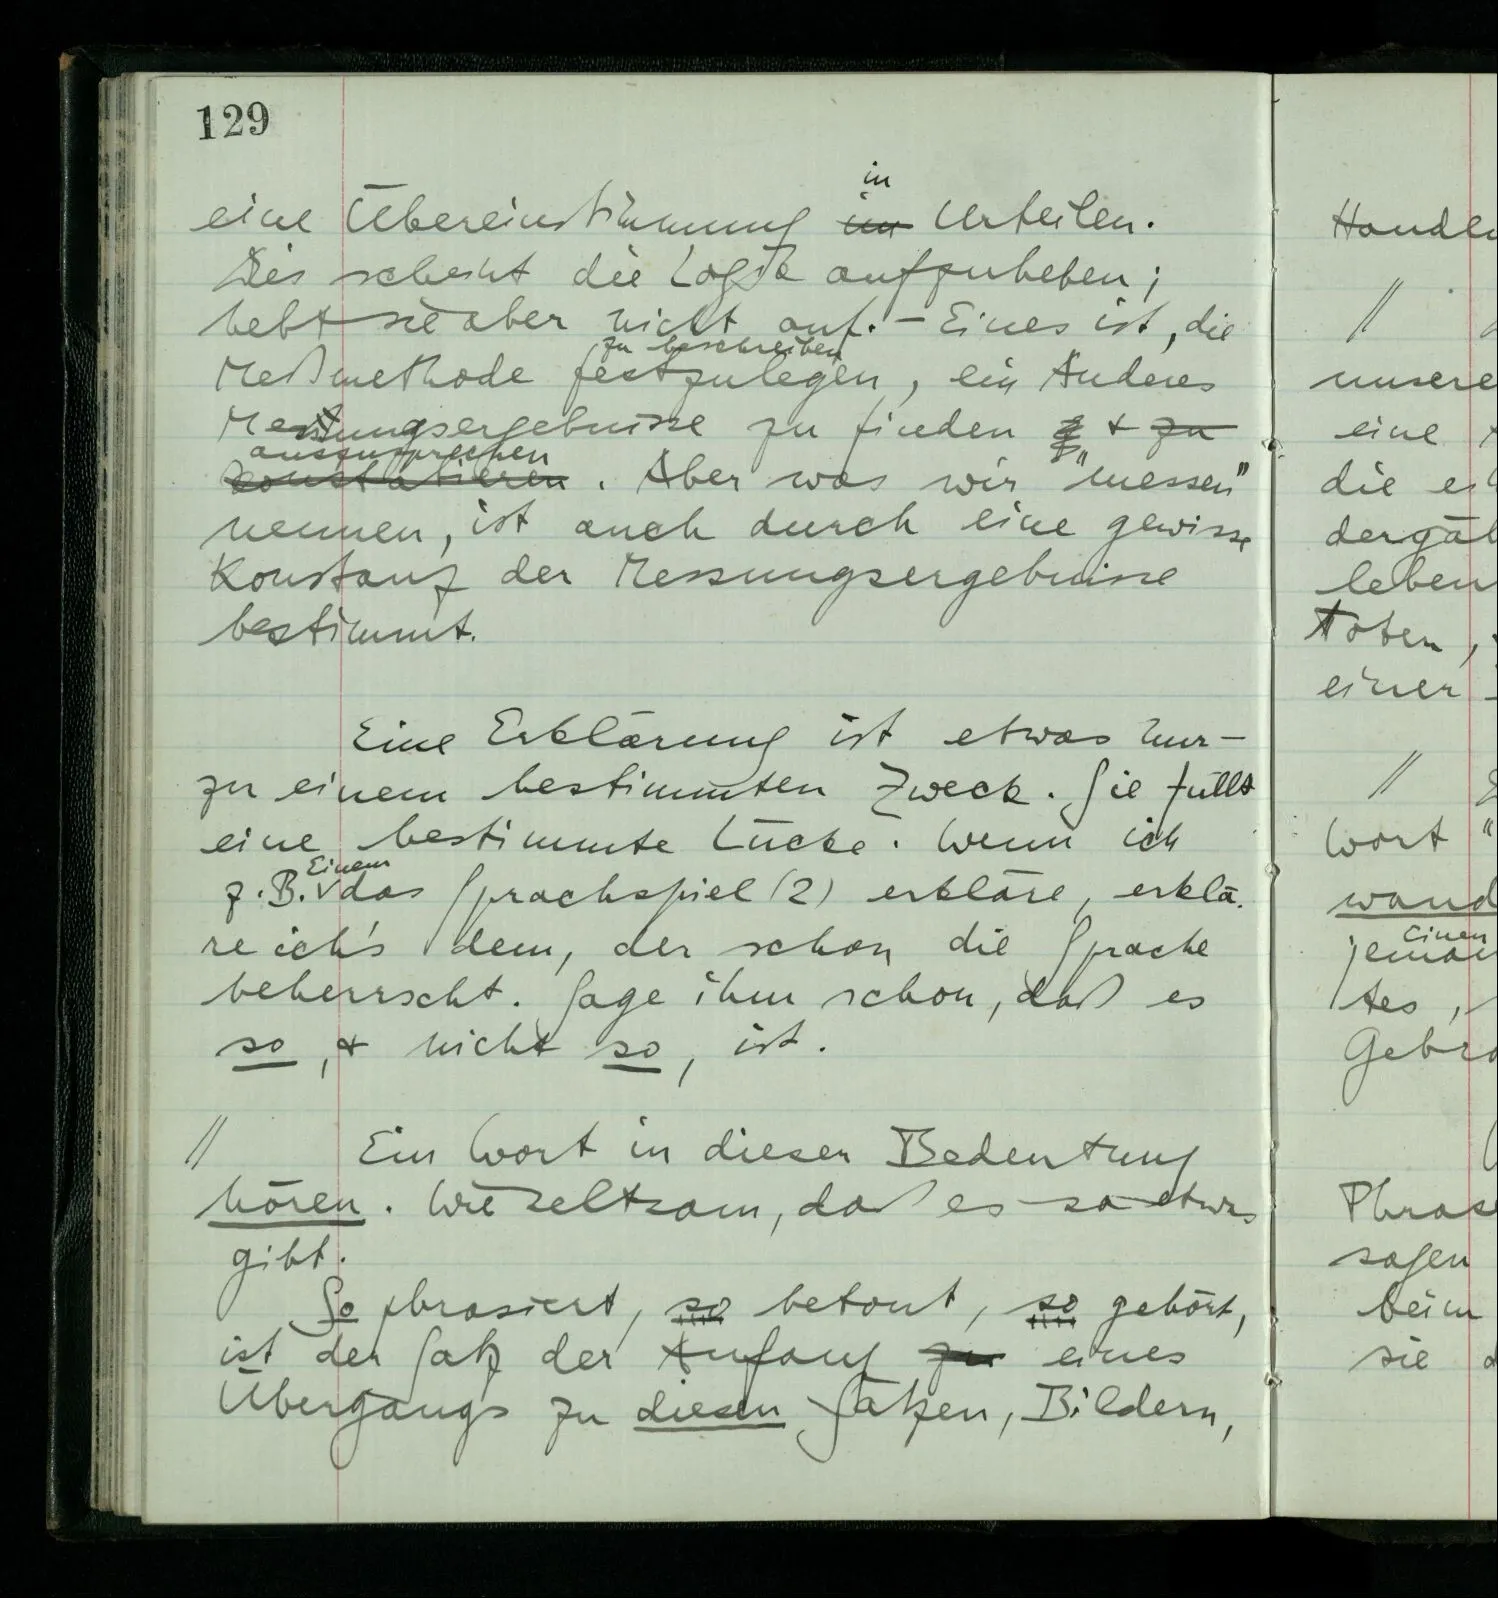 129
in
eine Übereinstimmung im Urteilen.
Dies scheint die Logik aufzuheben;
hebt sie aber nicht auf. – Eines ist, die
zu beschreiben
Meßmethode festzulegen, ein Anderes
Messungsergebnisse zu finden & zu
auszusprechen
konstatieren. Aber was wir "messen"
nennen, ist auch durch eine gewisse
Konstanz der Messungsergebnisse
bestimmt.
Eine Erklärung ist etwas nur
zu einem bestimmten Zweck. Sie füllt
eine bestimmte Lücke. Wenn ich
Einem
z.B. das Sprachspiel (2) erkläre, erklä-
re ich's dem, der schon die Sprache
beherrscht. Sage ihm schon, daß es
so, & nicht so, ist.
// Ein Wort in dieser Bedeutung
hören. Wie seltsam, daß es so etwas
gibt.
So phrasiert, so betont, so gehört,
ist der Satz der Anfang zu eines
Übergangs zu diesen Sätzen, Bildern,
//
unsere
eine
die
leben
Toten,
einer
//
Wort "
Einen
tes,
sagen
beim
sie